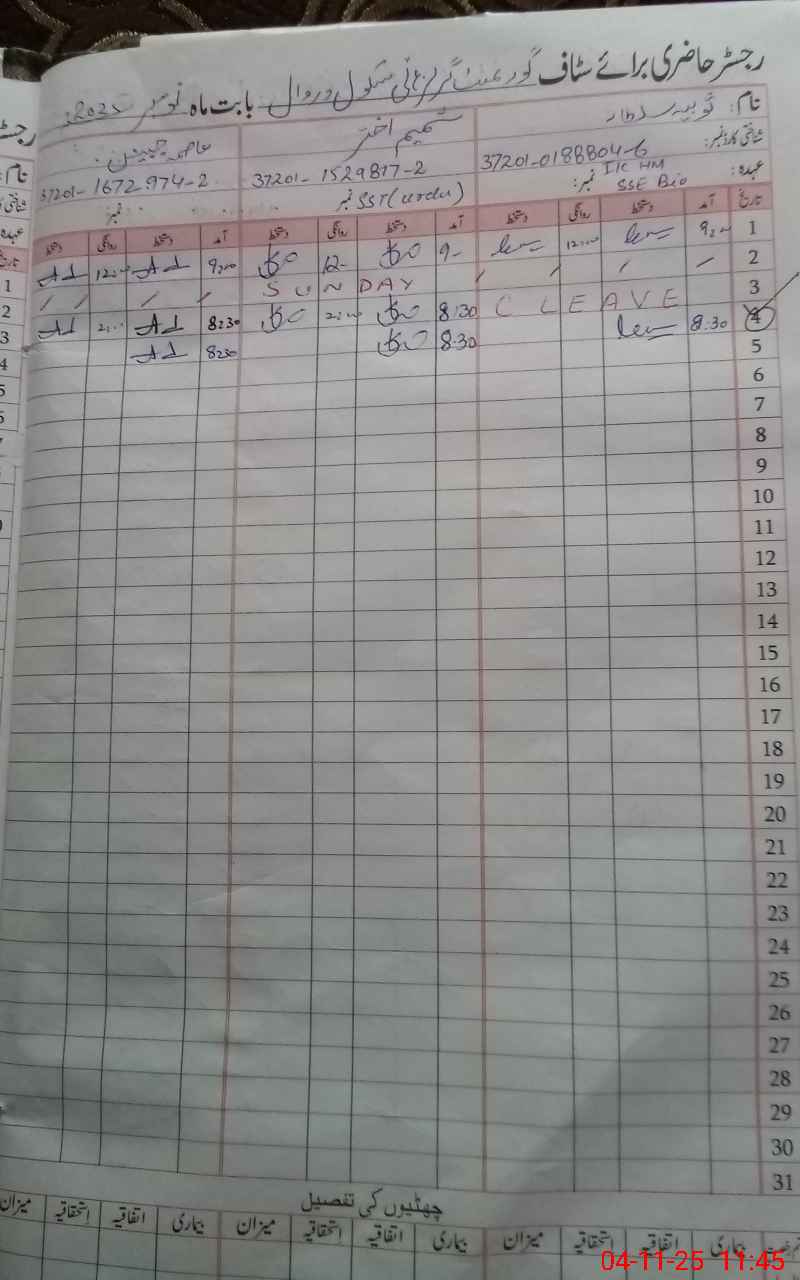 رجسٹر حاضری برائے سٹاف گورنمنٹ گرلز ہائی سکول دروال بابت ماہ نومبر 2025
نام: ثوبیہ سلطانہ شمیم اختر عاصمہ
شناختی کارڈ نمبر: 37201-0188804-6 37201-1529817-2 37201-1672974-2
عہدہ: I/C HM SSE Bio نمبر: SST(urdu) نمبر نمبر:
تاریخ آمد دستخط روانگی دستخط آمد دستخط روانگی دستخط آمد دستخط روانگی دستخط
1 9:00 12:00 9- 12- 9:00 12:00
2 SUNDAY
3 C LEAVE 8:30 2:00 8:30 2:00
4 8:30 8:30 8:30
5
6
7
8
9
10
11
12
13
14
15
16
17
18
19
20
21
22
23
24
25
26
27
28
29
30
31
چھٹیوں کی تفصیل
بیماری اتفاقیہ استحقاقیہ میزان بیماری اتفاقیہ استحقاقیہ میزان بیماری اتفاقیہ استحقاقیہ میزان
04-11-25 11:45